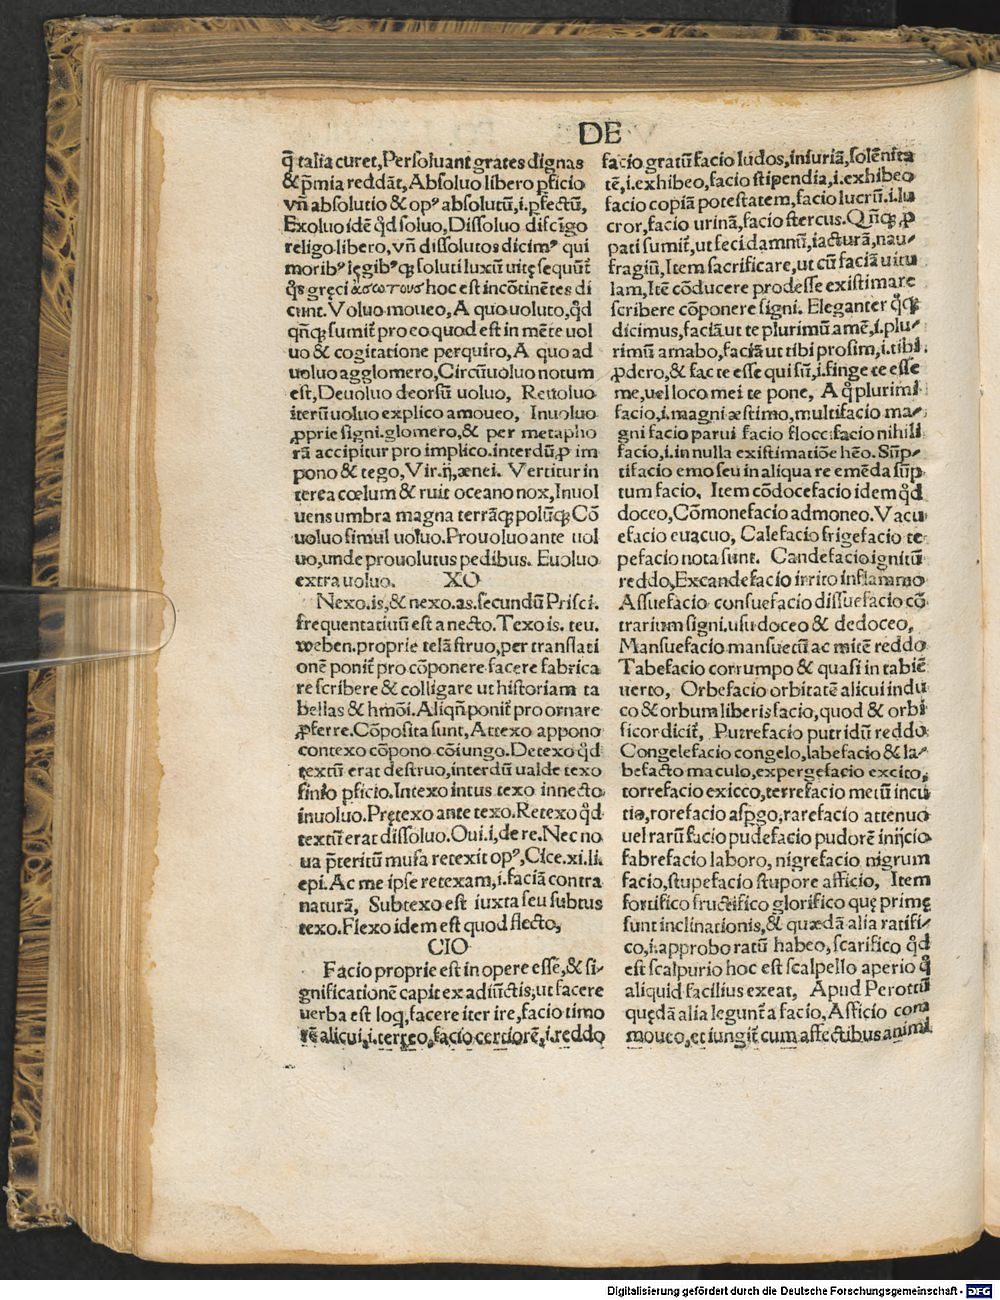 DE
q̄ talia curet,Persoluant grates dignas
& p̄mia reddāt, Absoluo libero p̄ficio
vn̄ absolutio & opꝰ absolutū,i.p̄fectū,
Exoluo idē qd̄ soluo, Dissoluo discīgo
religo libero, vn̄ dissolutos dicimꝰ qui
moribꝰ lęgibꝰqꝫ soluti luxū uitę sequūt̄
q̊s gręci ἀσώτους hoc est incōtinētes di
cunt. Voluo moueo, A quo uoluto, qd̄
qn̄qꝫ sumit̄ pro eo quod est in mēte uol
uo & cogitatione perquiro, A quo ad
uoluo agglomero, Circūuoluo notum
est, Deuoluo deorsū uoluo, Reuoluo
iterū uoluo explico amoueo, Inuoluo
ꝓprie signi.glomero, & per metapho
rā accipitur pro implico.interdū,ꝓ im
pono & tego, Vir.ij,ænei. Vertitur in
terea cœlum & ruit oceano nox, Inuol
uens umbra magna terrāqꝫ polūqꝫ Cō
uoluo simul uoluo. Prouoluo ante uol
uo, unde prouolutus pedibus. Euoluo
extra uoluo. XO
Nexo.is, & nexo.as.secundū Prisci.
frequentatiuū est a necto. Texo is. teu.
weben. proprie telā struo, per translati
onē ponit̄ pro cōponere facere fabrica
re scribere & colligare ut historiam ta
bellas & hmōi. Aliqn̄ ponit̄ pro ornare
ꝓferre. Cōposita sunt, Attexo appono
contexo cōpono cōiungo. Detexo qd̄
textū erat destruo, interdū ualde texo
finio p̄ficio. Intexo intus texo innecto
inuoluo. Prętexo ante texo. Retexo qd̄
textū erat dissoluo. Oui.i, de re. Nec no
ua p̄teritū musa retexit opꝰ, Cice.xi.li.
epi. Ac me ipse retexam, i.faciā contra
naturā, Subtexo est iuxta seu subtus
texo. Flexo idem est quod flecto,
CIO
Facio proprie est in opere esse, & si⸗
gnificationē capit ex adiūctis, ut facere
uerba est loq, facere iter ire, facio timo
rē alicui, i. terreo, facio certiorē, i.reddo
facio gratū facio ludos, iniuriā, solēnita
tē, i.exhibeo, facio stipendia, i.exhibeo
facio copiā potestatem, facio lucrū.i.lu
cror, facio urinā, facio stercus. Qn̄qꝫ ꝓ
pati sumit̄, ut feci damnū, iacturā, nau⸗
fragiū, Item sacrificare, ut cū faciā uitu
lam, Itē cōducere prodesse existimare
scribere cōponere signi. Eleganter q̊qꝫ
dicimus, faciā ut te plurimū amē, i.plu⸗
rimū amabo, faciā ut tibi prosim, i.tibi
ꝓdero, & fac te esse qui sū, i.finge te esse
me, uel loco mei te pone, A q̊ plurimi
facio, i.magni æstimo, multifacio ma⸗
gni facio parui facio flocci facio nihili
facio, i.in nulla existimatiōe hēo. Sūp⸗
tifacio emo seu in aliqua re emēda sūp
tum facio, Item cōdocefacio idem qd̄
doceo, Cōmonefacio admoneo. Vacu
efacio euacuo, Calefacio frigefacio te
pefacio nota sunt. Candefacio ignitū
reddo, Excandefacio irrito inflammo
Assuefacio consuefacio dissuefacio cō
trarium signi.usu doceo & dedoceo,
Mansuefacio mansuetū ac mitē reddo
Tabefacio corrumpo & quasi in tabiē
uerto, Orbefacio orbitatē alicui indu
co & orbum liberis facio, quod & orbi
ficor dicit̄, Putrefacio putridū reddo
Congelefacio congelo, labefacio & la⸗
befacto maculo, expergefacio excito,
torrefacio exicco, terrefacio metū incu
tio, rorefacio asp̄go, rarefacio attenuo
uel rarū facio pudefacio pudorē inijcio
fabrefacio laboro, nigrefacio nigrum
facio, stupefacio stupore afficio, Item
fortifico fructifico glorifico quę primę
sunt inclinationis, & quædā alia ratifi⸗
co, i.approbo ratū habeo, scarifico qd̄
est scalpurio hoc est scalpello aperio q̊
aliquid facilius exeat, Apud Perottū
quędā alia legunt̄ a facio, Afficio com
moueo, et iungit̄ cum affectibus animi
Digitalisierung gefördert durch die Deutsche Forschungsgemeinschaft - DFG